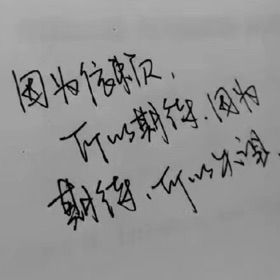 因为信赖,
所以期待.因为
期待,所以